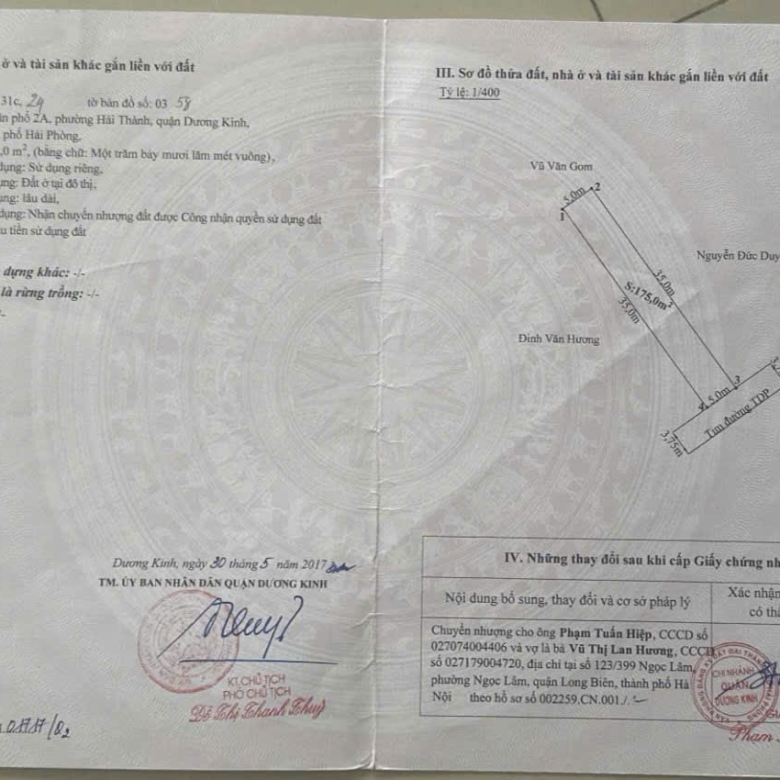 ở và tài sản khác gắn liền với đất
31c, 29 tờ bản đồ số: 03 58
phố 2A, phường Hải Thành, quận Dương Kinh,
phố Hải Phòng,
,0 m², (bằng chữ: Một trăm bảy mươi lăm mét vuông),
dụng: Sử dụng riêng,
ụng: Đất ở tại đô thị,
ụng: lâu dài,
dụng: Nhận chuyển nhượng đất được Công nhận quyền sử dụng đất
u tiền sử dụng đất
dựng khác: -/-
là rừng trồng: -/-
Dương Kinh, ngày 30 tháng 5 năm 2017
TM. ỦY BAN NHÂN DÂN QUẬN DƯƠNG KINH
KT.CHỦ TỊCH
PHÓ CHỦ TỊCH
Đỗ Thị Thanh Thuỷ
III. Sơ đồ thửa đất, nhà ở và tài sản khác gắn liền với đất
Tỷ lệ: 1/400
Vũ Văn Gom
5.0m
2
1
Nguyễn Đức Duy
35,0m
S:175,0m²
35,0m
Đinh Văn Hương
3
5.0m
4
Tim đường TDP
3,75m
IV. Những thay đổi sau khi cấp Giấy chứng nh
Nội dung bổ sung, thay đổi và cơ sở pháp lý
Xác nhận
có th
Chuyển nhượng cho ông Phạm Tuấn Hiệp, CCCD số
027074004406 và vợ là bà Vũ Thị Lan Hương, CCCD
số 027179004720, địa chỉ tại số 123/399 Ngọc Lâm,
phường Ngọc Lâm, quận Long Biên, thành phố Hà
Nội theo hồ sơ số 002259.CN.001./.
CHI NHÁNH
QUẬN
DƯƠNG KINH
Phạm